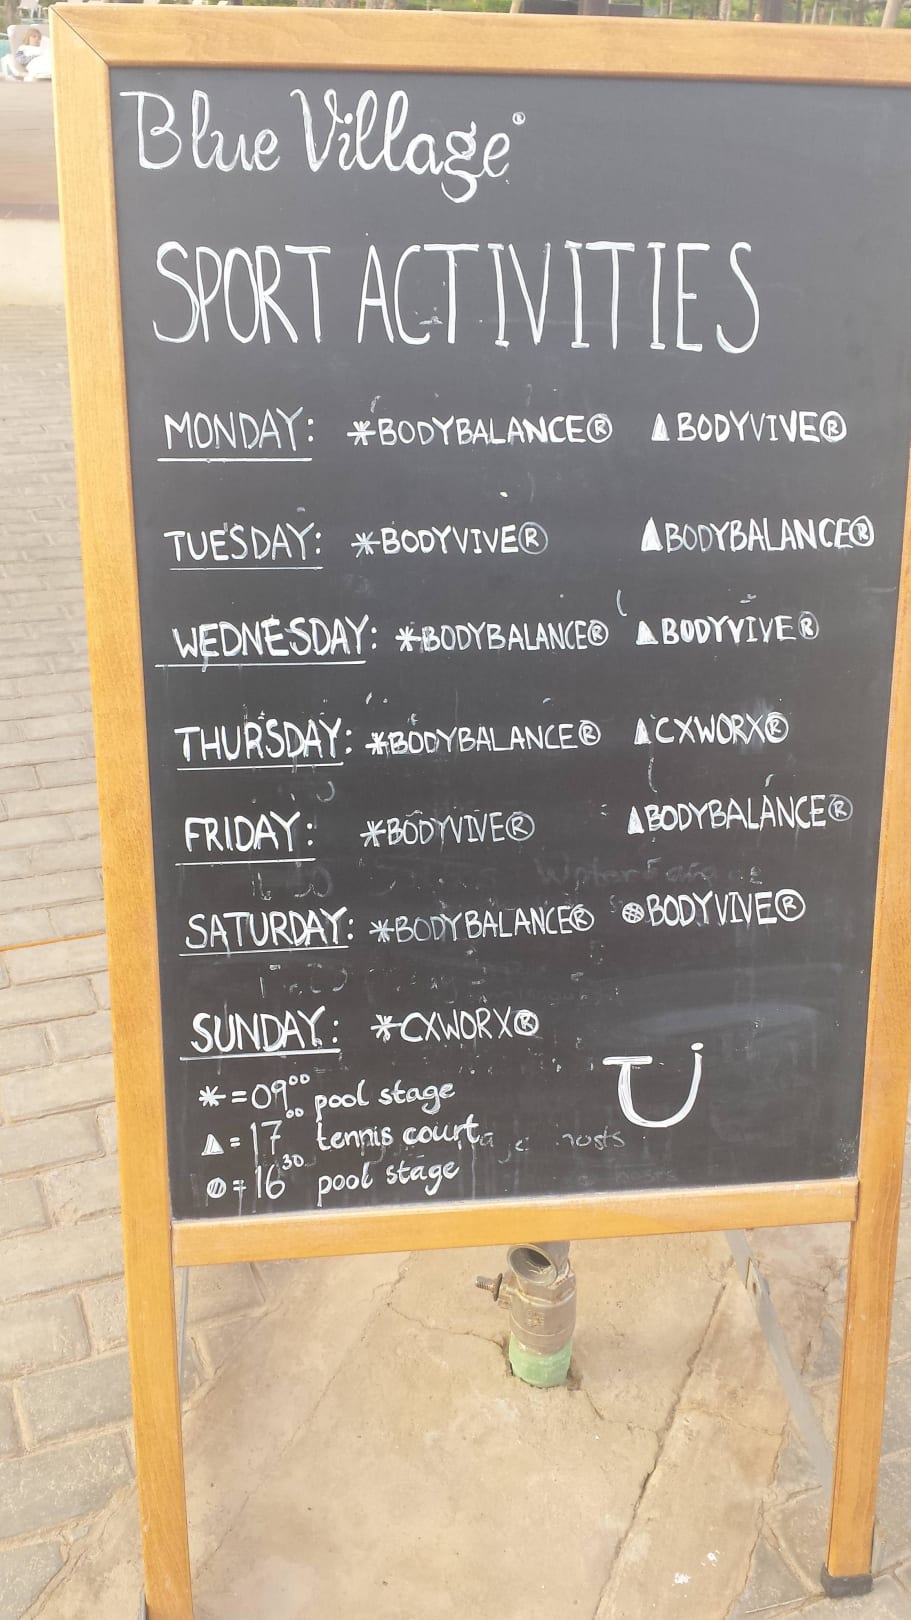 Blue Village®
SPORT ACTIVITIES
MONDAY: *BODYBALANCE® ▲BODYVIVE®
TUESDAY: *BODYVIVE® ▲BODYBALANCE®
WEDNESDAY: *BODYBALANCE® ▲BODYVIVE®
THURSDAY: *BODYBALANCE® ▲CXWORX®
FRIDAY: *BODYVIVE® ▲BODYBALANCE®
SATURDAY: *BODYBALANCE® ●BODYVIVE®
SUNDAY: *CXWORX®
*=09⁰⁰ pool stage
▲=17⁰⁰ tennis court
●=16³⁰ pool stage